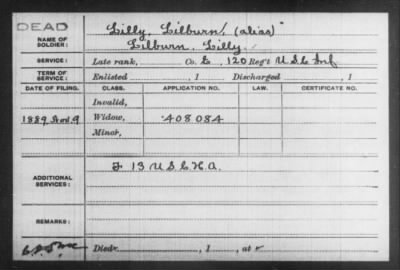 DEAD
NAME OF SOLDIER: Lilly, Lilburn, (alias)"
Lilburn, Lilly.
SERVICE: Late rank, Co. G, 120 Reg't U.S.C. Inf
TERM OF SERVICE: Enlisted , 1 Discharged , 1
DATE OF FILING. CLASS. APPLICATION NO. LAW. CERTIFICATE NO.
Invalid,
1889 Widow, 408084
Minor,
ADDITIONAL SERVICES: F 13 U.S.C.H.A.
REMARKS:
Died , 1 , at